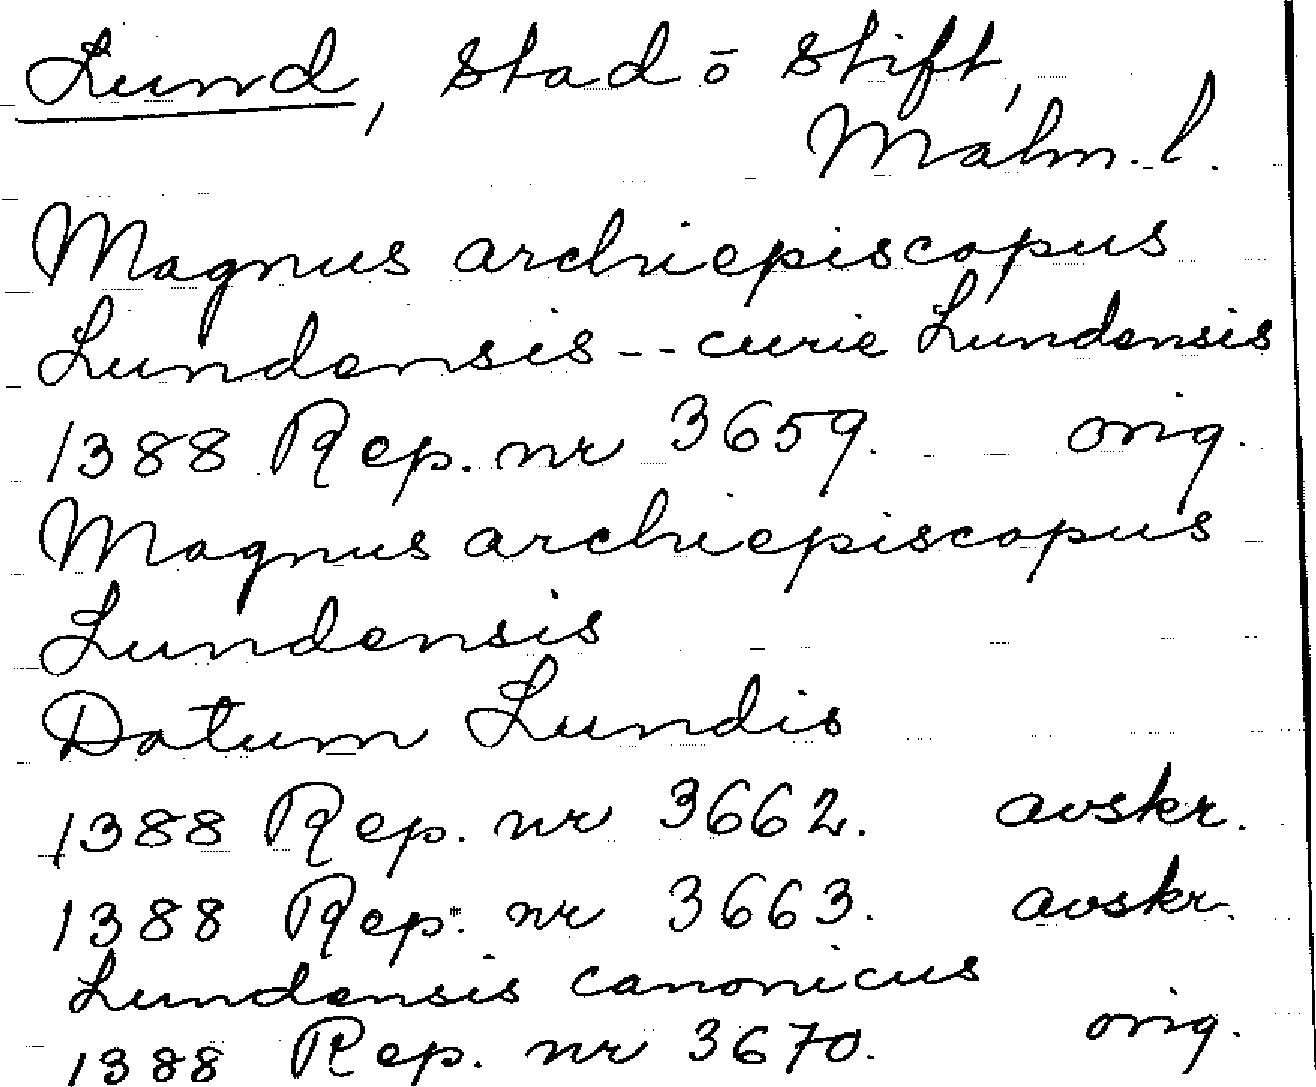 Lund, Stad ō Stift,
Malm. l.
Magnus archiepiscopus
Lundensis -- curie Lundensis
1388 Rep. nr 3659. orig.
Magnus archiepiscopus
Lundensis
Datum Lundis
1388 Rep. nr 3662. avskr.
1388 Rep. nr 3663. avskr.
Lundensis canonicus
1388 Rep. nr 3670. orig.